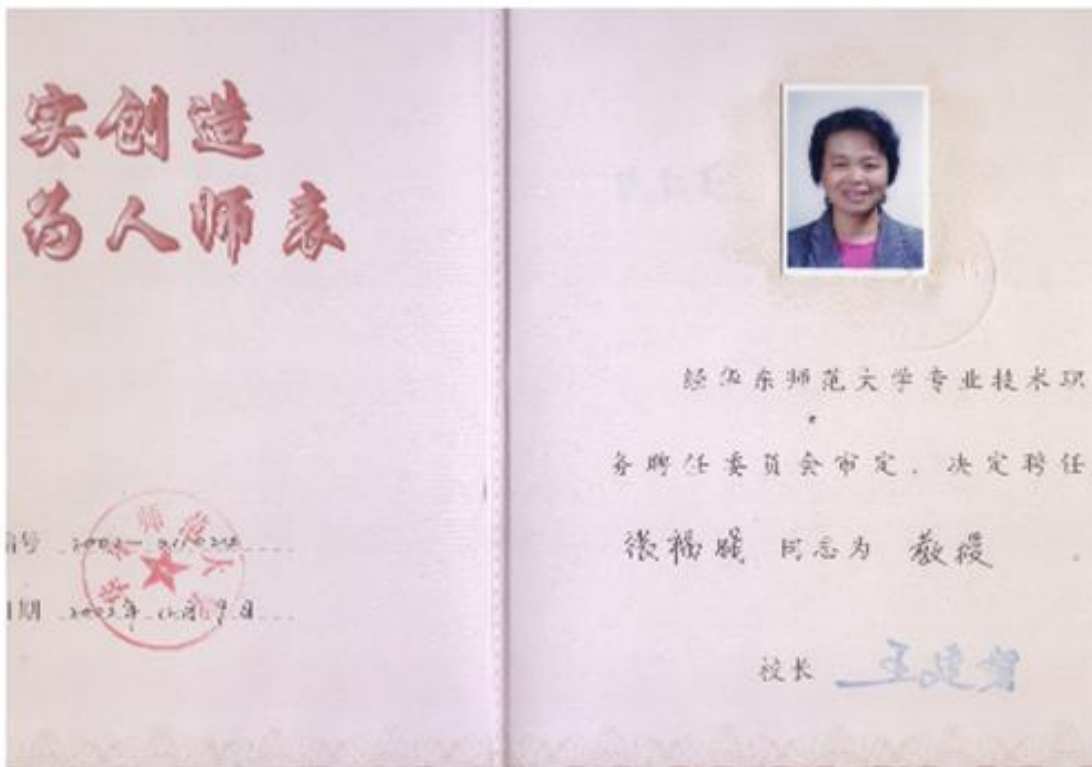 实创造
为人师表
编号
日期 2002年12月9日
华东师范大学
经华东师范大学专业技术职
务聘任委员会审定，决定聘任
同志为 教授
校长 王建磐